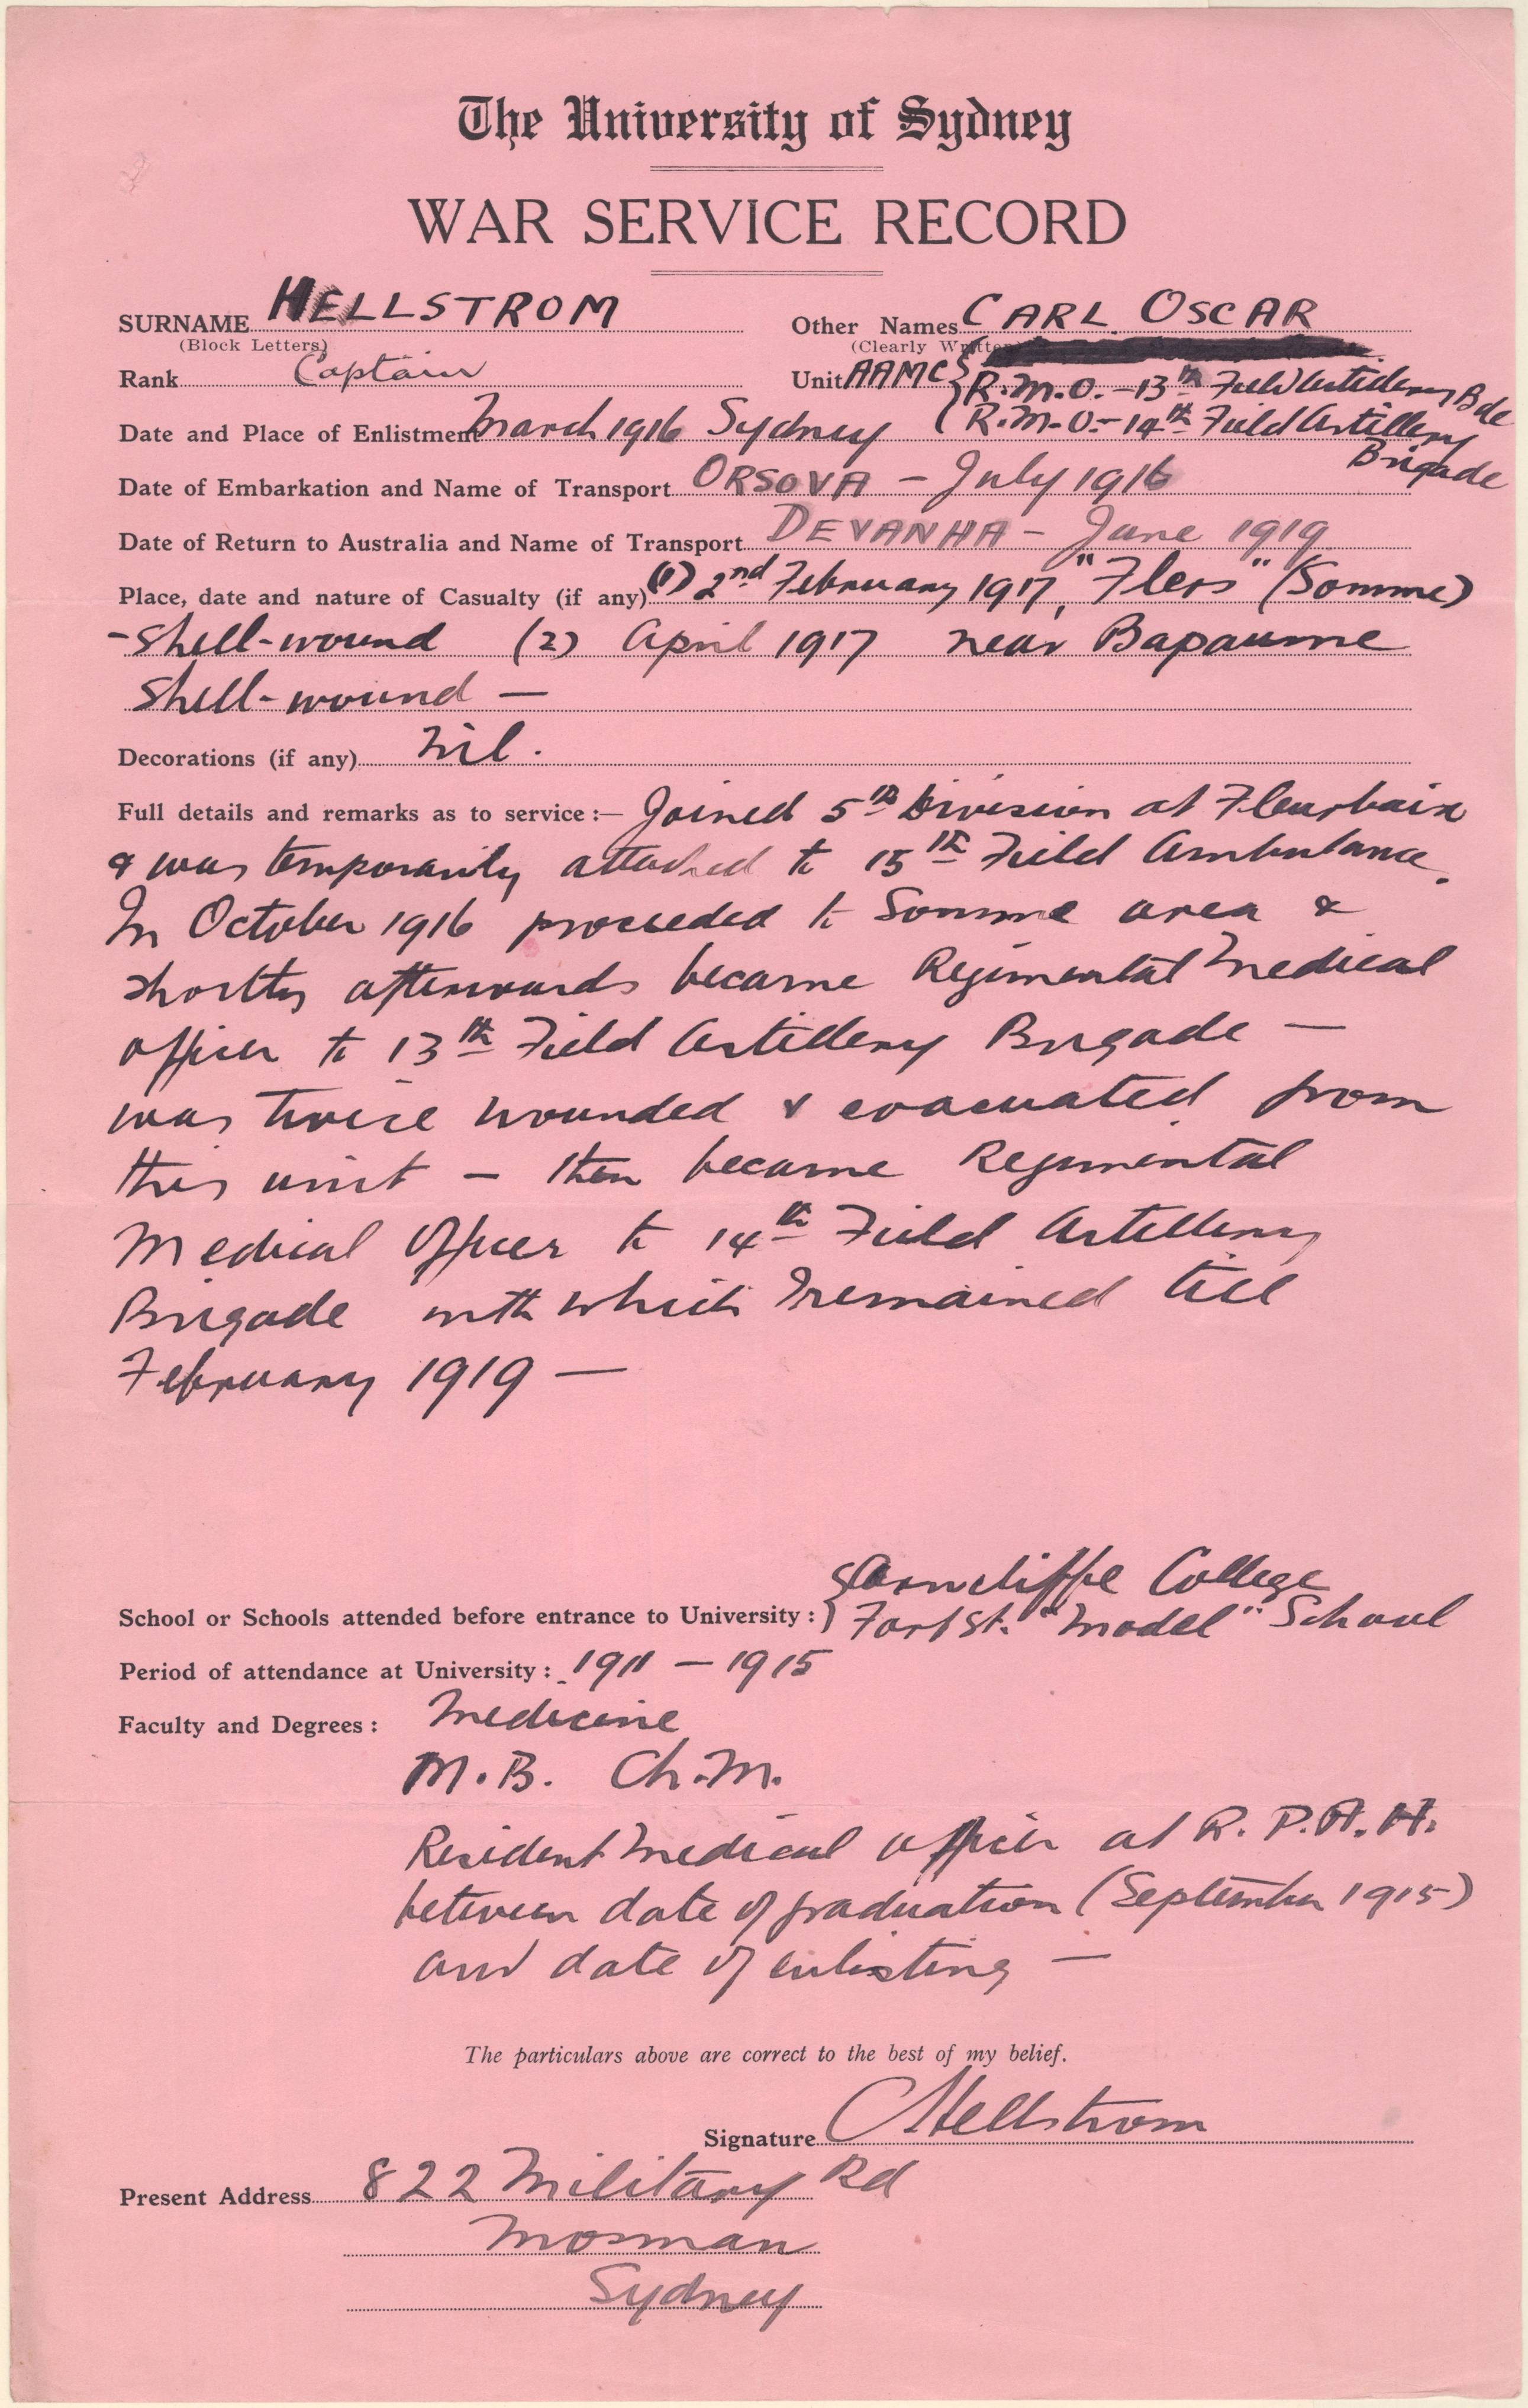 The University of Sydney
WAR SERVICE RECORD
SURNAME HELLSTROM Other Names CARL OSCAR
(Block Letters) (Clearly Written)
Rank Captain Unit AAMC { R.M.O. - 13th Field Artillery Bde
Date and Place of Enlistment March 1916 Sydney ( R.M.O. - 14th Field Artillery
Brigade
Date of Embarkation and Name of Transport ORSOVA - July 1916
Date of Return to Australia and Name of Transport DEVANHA - June 1919
Place, date and nature of Casualty (if any) (1) 2nd February 1917, "Flers" (Somme)
- Shell-wound (2) April 1917 near Bapaume
Shell-wound —
Decorations (if any) Nil.
Full details and remarks as to service :— Joined 5th Division at Fleurbaix
& was temporarily attached to 15th Field Ambulance.
In October 1916 proceeded to Somme area &
shortly afterwards became Regimental Medical
Officer to 13th Field Artillery Brigade —
was twice wounded & evacuated from
this unit — then became Regimental
Medical Officer to 14th Field Artillery
Brigade with which I remained till
February 1919 —
{ Arncliffe College
School or Schools attended before entrance to University : ) Fort St. "Model" School
Period of attendance at University : 1911 - 1915
Faculty and Degrees : Medicine
M.B. Ch.M.
Resident Medical Officer at R.P.A.H.
between date of graduation (September 1915)
and date of enlisting —
The particulars above are correct to the best of my belief.
Signature CHellstrom
Present Address 822 Military Rd
Mosman
Sydney